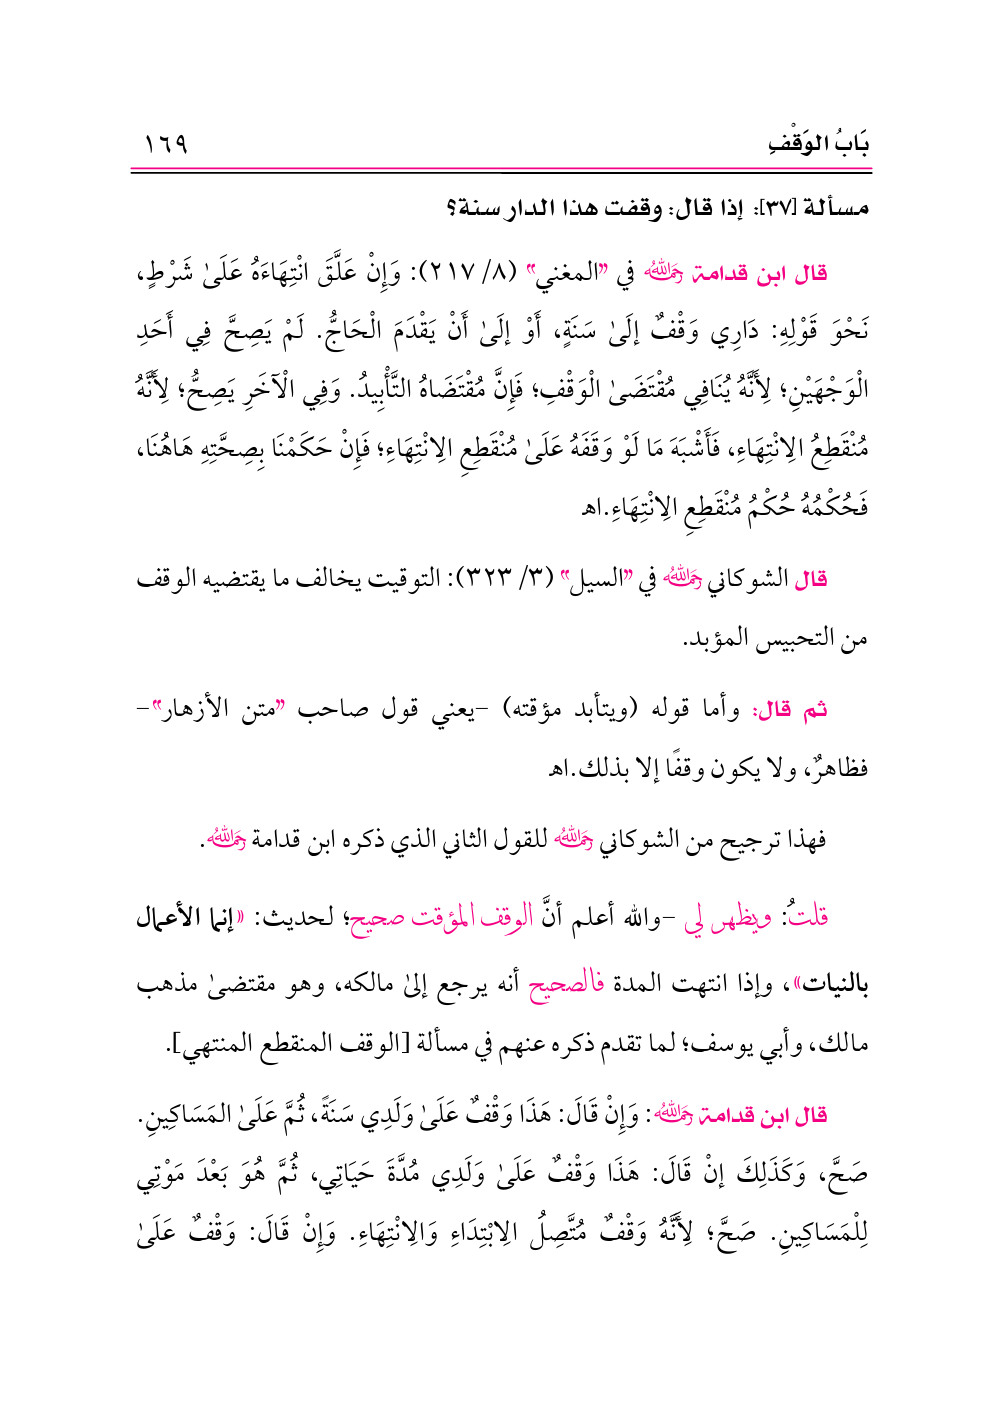 بَابُ الوَقْفِ ١٦٩
مسألة [٣٧]: إذا قال: وقفت هذا الدار سنة؟
قال ابن قدامة رَحِمَهُ اللهُ في "المغني" (٨/ ٢١٧): وَإِنْ عَلَّقَ انْتِهَاءَهُ عَلَىٰ شَرْطٍ،
نَحْوَ قَوْلِهِ: دَارِي وَقْفٌ إلَىٰ سَنَةٍ، أَوْ إلَىٰ أَنْ يَقْدَمَ الْحَاجُّ. لَمْ يَصِحَّ فِي أَحَدِ
الْوَجْهَيْنِ؛ لِأَنَّهُ يُنَافِي مُقْتَضَىٰ الْوَقْفِ؛ فَإِنَّ مُقْتَضَاهُ التَّأْبِيدُ. وَفِي الْآخَرِ يَصِحُّ؛ لِأَنَّهُ
مُنْقَطِعُ الِانْتِهَاءِ، فَأَشْبَهَ مَا لَوْ وَقَفَهُ عَلَىٰ مُنْقَطِعِ الِانْتِهَاءِ؛ فَإِنْ حَكَمْنَا بِصِحَّتِهِ هَاهُنَا،
فَحُكْمُهُ حُكْمُ مُنْقَطِعِ الِانْتِهَاءِ.اﻫ
قال الشوكاني رَحِمَهُ اللهُ في "السيل" (٣/ ٣٢٣): التوقيت يخالف ما يقتضيه الوقف
من التحبيس المؤبد.
ثم قال: وأما قوله (ويتأبد مؤقته) -يعني قول صاحب "متن الأزهار"-
فظاهرٌ، ولا يكون وقفًا إلا بذلك.اﻫ
فهذا ترجيح من الشوكاني رَحِمَهُ اللهُ للقول الثاني الذي ذكره ابن قدامة رَحِمَهُ اللهُ.
قلتُ: ويظهر لي -والله أعلم أنَّ الوقف المؤقت صحيح؛ لحديث: «إنما الأعمال
بالنيات»، وإذا انتهت المدة فالصحيح أنه يرجع إلىٰ مالكه، وهو مقتضىٰ مذهب
مالك، وأبي يوسف؛ لما تقدم ذكره عنهم في مسألة [الوقف المنقطع المنتهي].
قال ابن قدامة رَحِمَهُ اللهُ: وَإِنْ قَالَ: هَذَا وَقْفٌ عَلَىٰ وَلَدِي سَنَةً، ثُمَّ عَلَىٰ المَسَاكِينِ.
صَحَّ، وَكَذَلِكَ إنْ قَالَ: هَذَا وَقْفٌ عَلَىٰ وَلَدِي مُدَّةَ حَيَاتِي، ثُمَّ هُوَ بَعْدَ مَوْتِي
لِلْمَسَاكِينِ. صَحَّ؛ لِأَنَّهُ وَقْفٌ مُتَّصِلُ الِابْتِدَاءِ وَالِانْتِهَاءِ. وَإِنْ قَالَ: وَقْفٌ عَلَىٰ